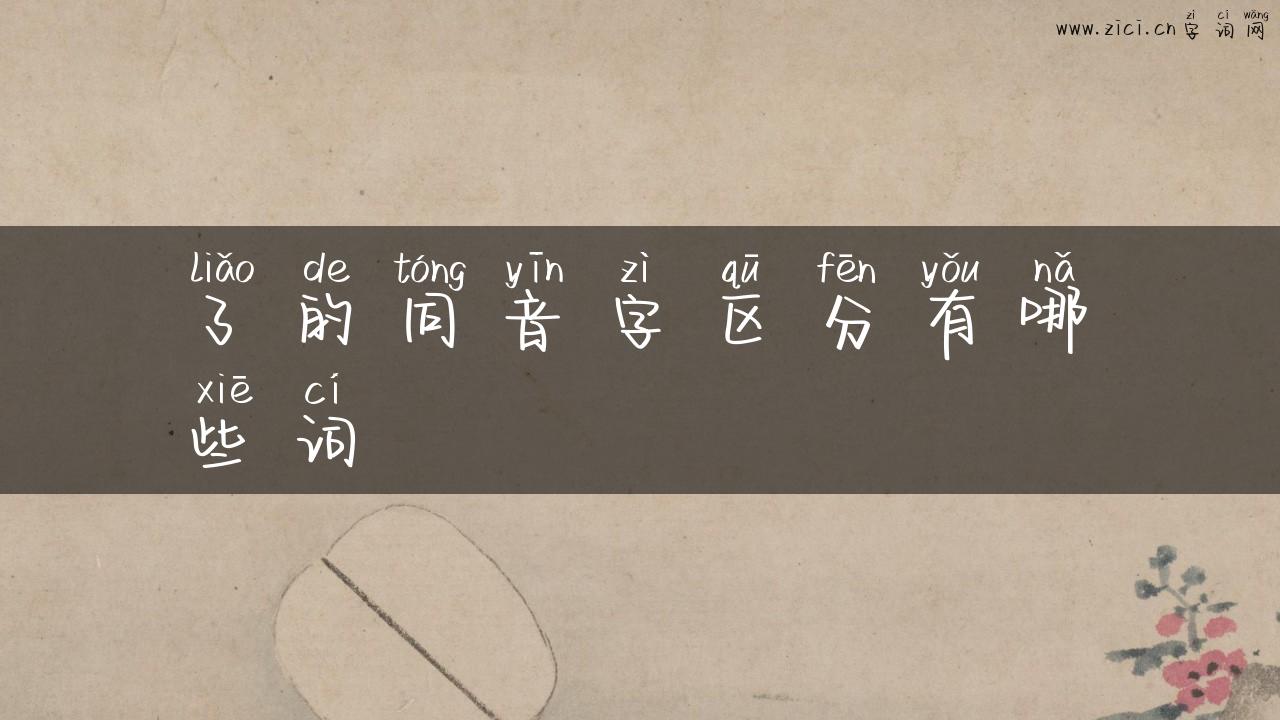 zì cí wǎng
www.zici.cn字词网
liǎo de tóng yīn zì qū fēn yǒu nǎ
了的同音字区分有哪
xiē cí
些词